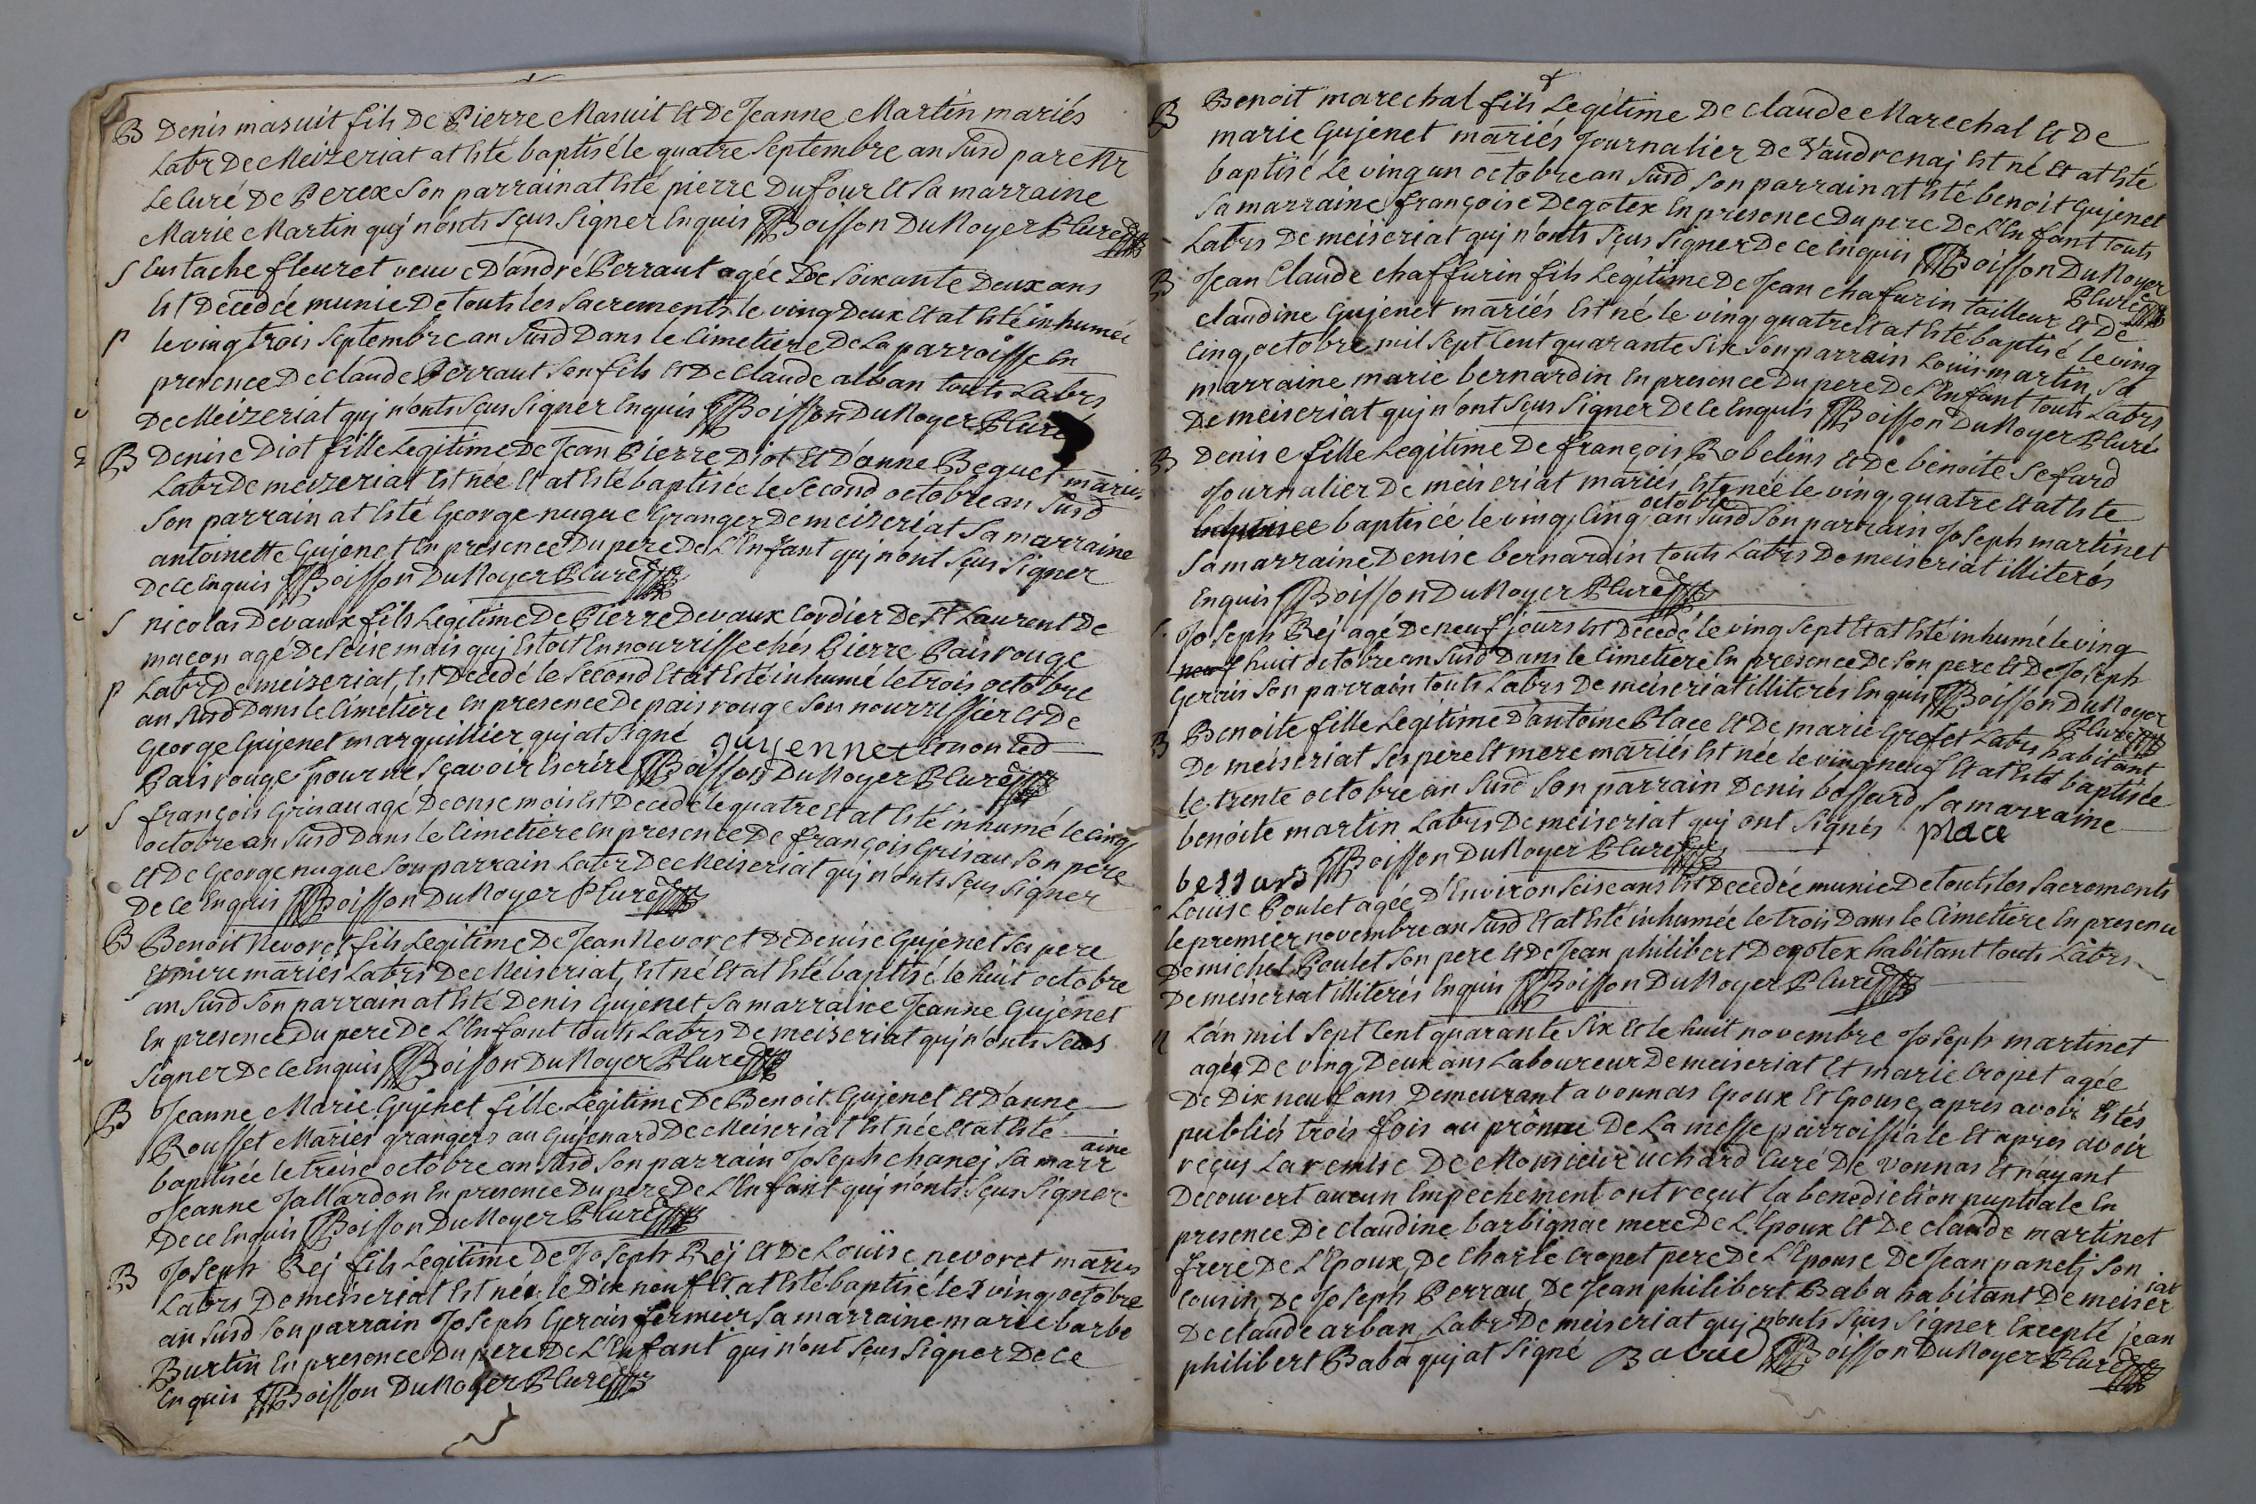 B Denis masuit fils De Pierre Masuit Et De Jeanne Martin mariés
Labr De Meizeriat at Esté baptisé le quatre Septembre an Susd par Mr
Le Curé De Perex Son parrain at Esté pierre Dufour Et Sa marraine
Marie Martin quj n'onts Sçus Signer Enquis Boisson Du Noyer Curé
S Eustache fleuret veuve D'andré Perraut agée De Soixante Deux ans
Est Décédée munie De touts les Sacrements le ving Deux Et at Esté inhumée
P le ving trois Septembre an Susd Dans le Cimetiere De La parroisse En
presence De claude Perraut Son fils Et De Claude alban touts Labrs
De Meizeriat quj n'onts Sçus Signer Enquis Boisson Du Noyer Curé
B Denise Diot fille Legitime De Jean Pierre Diot Et D'anne Beguet mariés
Labr De meizeriat Est née Et at Esté baptisée le Second octobre an Susd
Son parrain at Esté George nugue Granger De meizeriat Sa marraine
antoinette Gujenet En presence Du pere De L'Enfant quj n'ont Sçus Signer
De ce Enquis Boisson Du Noyer Curé
S nicolas Devaux fils Legitime De Pierre Devaux Cordier De St Laurent De
macon agé De Seise mois quj Estoit En nourrisse chés Pierre Pairouge
P Labr De meizeriat, Est Decedé le Second Et at Esté inhumé le trois octobre
an Susd Dans le Cimetiere En presence De pairouge Son nourrissier Et De
George Gujenet marguillier quj at Signé guyennet Et non led
Pairouge pour ne Sçavoir Escrire Boisson Du Noyer Curé
S françois Grisau agé De onse mois Est Decedé le quatre Et at Esté inhumé le Cinq
octobre an Susd Dans le Cimetiere En presence De françois Grisau Son pere
Et De George nugue Son parrain Labr De Meiseriat quj n'onts Sçus Signer
De ce Enquis Boisson Du Noyer Curé
B Benoit Nevoret fils Legitime De Jean Nevoret De Denise Gujenet Ses pere
Et mere mariés Labrs De Meiseriat, Est né Et at Esté baptisé le huit octobre
an Susd Son parrain at Esté Denis Gujenet Sa marraine Jeanne Gujenet
En presence Du pere De L'Enfant touts Labrs De meizeriat quj n'onts Sçus
Signer De ce Enquis Boisson Du Noyer Curé
B Jeanne Marie Gujenet fille Legitime De Benoit Gujenet Et D'anne
Rousset Mariés grangers au Gujenard De Meiseriat Est née Et at Esté
baptisée le treise octobre an Susd Son parrain Joseph chanej Sa marraine
Jeanne Jallardon En presence Du pere De L'Enfant quj n'onts Sçus Signer
De ce Enquis Boisson Du Noyer Curé
B Joseph Rej fils Legitime De Joseph Rej Et De Louïse nevoret mariés
Labrs De meiseriat Est née le Dix neuf Et at Esté baptisé le ving octobre
an Susd Son parrain Joseph Gerais fermier Sa marraine marie barbe
Burtin En presence Du pere De L'Enfant qui n'ont Sçus Signer De ce
Enquis Boisson Du Noyer Curé
B Benoit marechal fils Legitime De claude Marechal Et De
marie Gujenet mariés Journalier De Vaudrenaj Est né Et at Esté
baptisé Le ving un octobre an Susd Son parrain at Esté benoit Gujenet
Sa marraine françoise Degotex En presence Du pere De L'Enfant touts
Labrs De meiseriat quj n'onts Sçus Signer De ce Enquis Boisson Du Noyer
Curé
B Jean Claude chaffurin fils Legitime De Jean chafurin tailleur Et De
claudine Gujenet mariés Est né le ving quatre Et at Esté baptisé le ving
Cinq octobre mil Sept Cent quarante Six Son parrain Louis martin, Sa
marraine marie bernardin En presence Du pere De L'Enfant touts Labrs
De meiseriat quj n'ont Sçus Signer De ce Enquis Boisson Du Noyer Curé
B Denise fille Legitime De françois Robelins Et De benoite Sefard
Journalier De meiseriat mariés, Est née le ving quatre Et at Esté
baptisée le ving Cinq octobre an Susd Son parrain Joseph martinet
Sa marraine Denise bernardin touts Labrs De meiseriat illiterés
Enquis Boisson Du Noyer Curé
S Joseph Rej agé De neuf jours Est Decedé le ving Sept Et at Esté inhumé le ving
neuf huit octobre an Susd Dans le Cimetiere En presence De Son pere Et De Joseph
Gerais Son parrain touts Labrs De meiseriat illiterés Enquis Boisson Du Noyer
Curé
B Benoite fille Legitime D'antoine Place Et De marie Grofet Labrs habitant
De meiseriat Ses pere Et mere mariés Est née le ving neuf Et at Esté baptisée
le trente octobre an Susd Son parrain Denis bessard, Sa marraine
benoite martin Labrs De meiseriat quj ont Signés place
bessard Boisson Du Noyer Curé
Louise Poulet agée D'Environ Seise ans Est Decedée munie De touts les Sacrements
le premier novembre an Susd Et at Esté inhumée le trois Dans le Cimetiere En presence
De michel Poulet Son pere Et De Jean philibert Degotex habitant touts Labrs
De meiseriat illiterés Enquis Boisson Du Noyer Curé
L'an mil Sept Cent quarante Six Et le huit novembre Joseph martinet
agé De ving Deux ans Laboureur De meiseriat Et marie Cropet agée
De Dix neuf ans Demeurant a vonnas Epoux Et Epouse, apres avoir Estés
publiés trois fois au prône De La messe parroissiale Et apres avoir
reçus La remise De Monsieur uchard Curé De vonnas Et n'ayant
Decouvert aucun Empechement ont reçut la benediction nuptiale En
presence De claudine barbignac mere De L'Epoux Et De claude martinet
frere De L'Epoux, De Charle Cropet pere De L'Epouse De Jean panetj Son
Cousin, De Joseph Perrau, De Jean philibert Baba habitant De meiseriat
De claude arban, Labr De meiseriat quj n'onts Sçus Signer Excepté jean
philibert Baba quj at Signé Boisson Du Noyer Curé